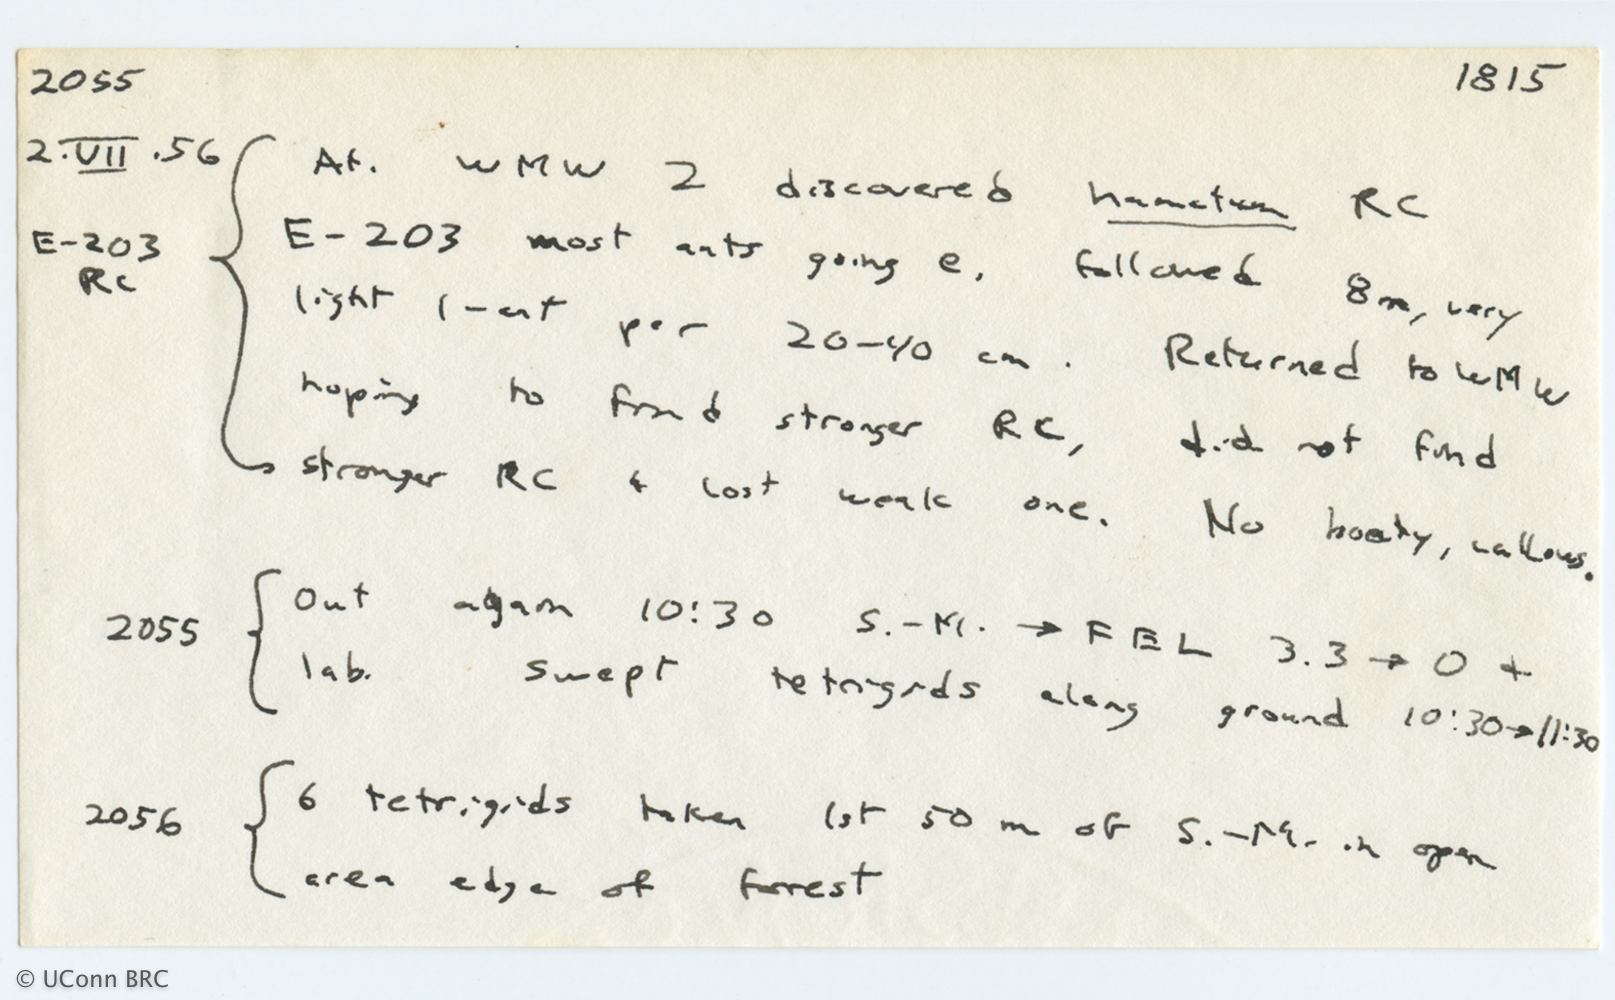 2055 1815
2.VII.56 At. WMW 2 discovered hamatum RC
E-203 E-203 most ants going e, followed 8m, very
RC light 1-ant per 20-40 cm. Returned to WMW
hoping to find stronger RC, did not find
stronger RC & lost weak one. No booty, callows.
Out again 10:30 S.-M. → FEL 3.3 → 0 +
2055 lab. swept tetrigids along ground 10:30→11:30
2056 6 tetrigids taken 1st 50 m of S.-M. in open
area edge of forrest
© UConn BRC